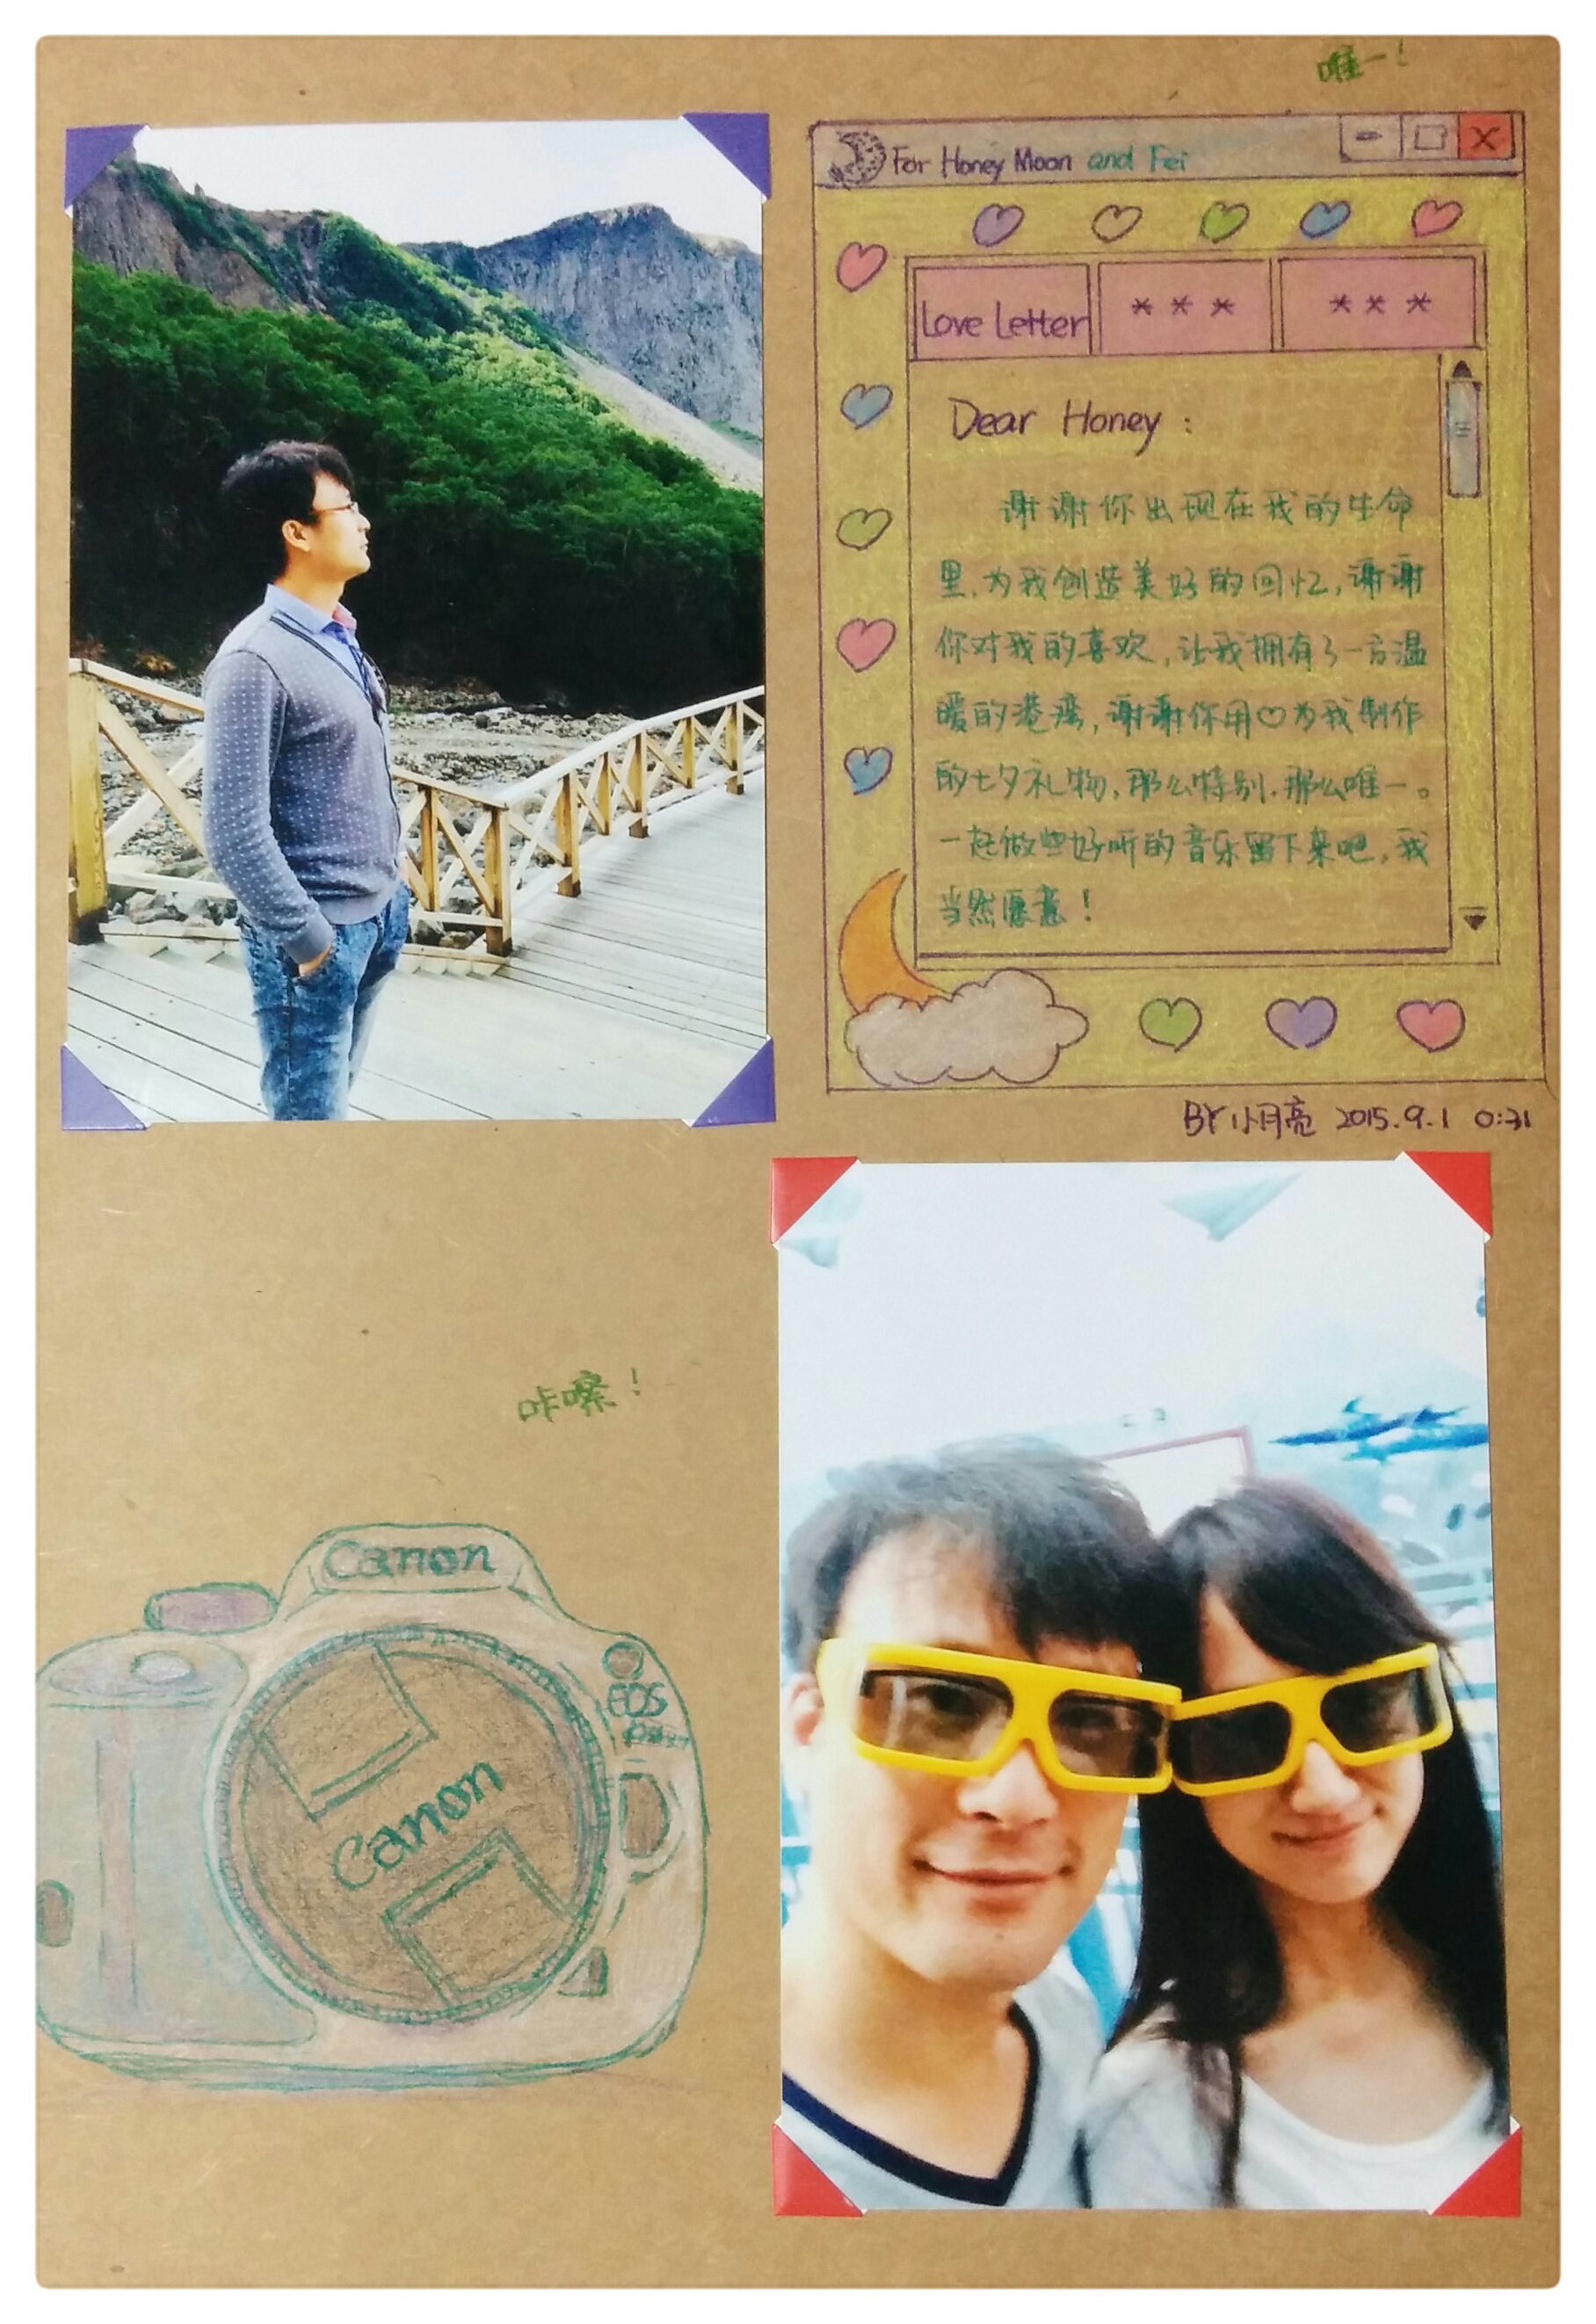 唯一!
For Honey Moon and Fei
Love Letter
***
***
Dear Honey:
谢谢你出现在我的生命
里,为我创造美好的回忆,谢谢
你对我的喜欢,让我拥有了一方温
暖的港湾,谢谢你用♡为我制作
的七夕礼物,那么特别,那么唯一。
一起做些好听的音乐留下来吧,我
当然愿意!
BY 小月亮 2015.9.1 0:31
咔嚓!
Canon
EOS
Canon